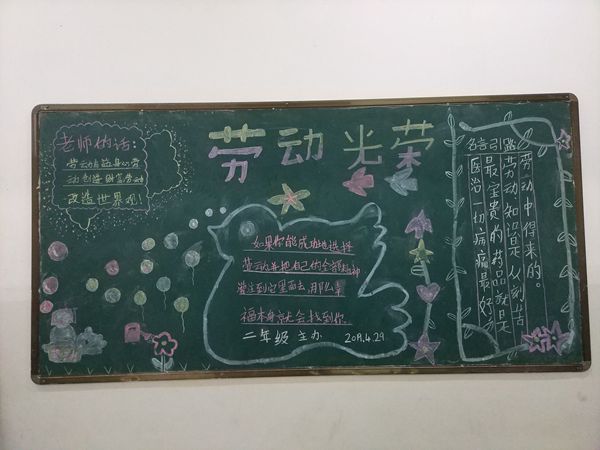 劳动光荣
老师的话：
劳动有益身心，劳
动创造财富，劳动
改造世界观！
如果你能成功地选择
劳动并把自己的全部精神
灌注到它里面去，那么幸
福本身就会找到你
二年级 主办 2019.4.29
名言引路
医治一切病痛最好
最宝贵的药品就是
劳动 知识是从刻苦
劳动中得来的。